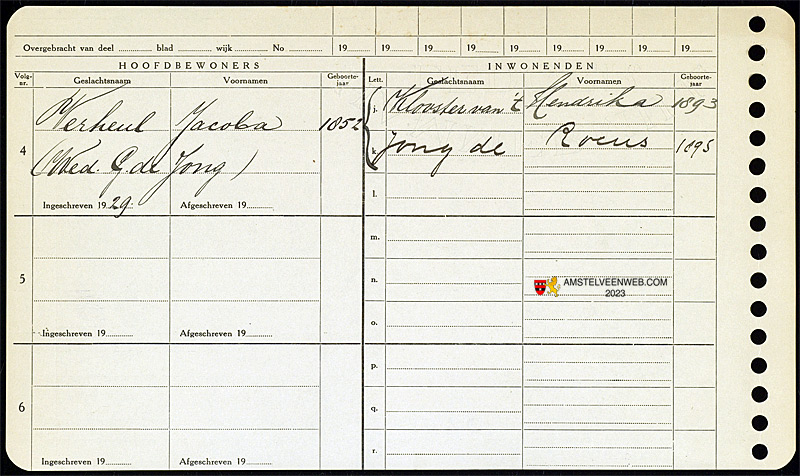 Overgebracht van deel ........ blad ........ wijk ........ No ........ 19.... 19.... 19.... 19.... 19.... 19.... 19.... 19.... 19....
HOOFDBEWONERS INWONENDEN
Volg-nr. Geslachtsnaam Voornamen Geboorte-jaar Lett. Geslachtsnaam Voornamen Geboorte-jaar
j. Klooster van 't Hendrika 1893
Verheul Jacoba 1852
4 k. Jong de Roeus 1895
(Wed. G. de Jong)
l.
Ingeschreven 1929. Afgeschreven 19........
m.
5 n.
AMSTELVEENWEB.COM
2023
o.
Ingeschreven 19........ Afgeschreven 19........
p.
6 q.
r.
Ingeschreven 19........ Afgeschreven 19........